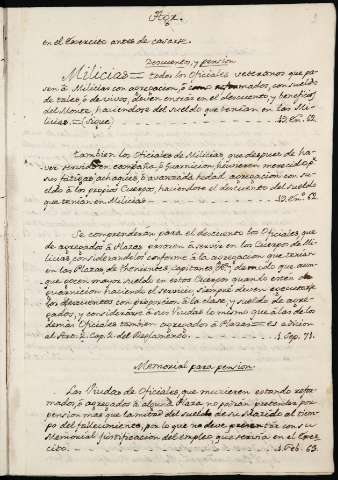 en el Exercito antes de casarse.
Descuento, y pension
Milicias = todos los Oficiales veteranos que pa-
sen à Milicias con agregacion, ò como reformados, con sueldo
de tales, ò de vivos, deven entrar en el descuento, y beneficios
del Monte, haciendose del sueldo que tenian en las Mi-
licias = (Sigue) 13. En.º 62.
tambien los Oficiales de Milicias, que despues de ha-
ver servido en campaña, ò Guarnicion, huvieren merecido, p.r
sus fatigas, achaques, ò avanzada hedad, agregacion con su-
eldo à los propios Cuerpos, haciendose el descuento del sueldo
que tenian en Milicias 13. En.º 62.
Se comprenderàn para el descuento los Oficiales, que
de agregados à Plazas pasaron à servir en los Cuerpos de Mi-
licias, considerandolos conforme à la agregacion que tenian
en las Plazas, de thenientes, Capitanes &c. de modo que aun-
que gocen mayor sueldo en estos Cuerpos quando estèn de
guarnicion haciendo el servicio, siempre deven executarse
los descuentos con proporcion à la clase, y sueldo de agre-
gados, y considerarse à sus Viudas lo mismo que à las de los
demas Oficiales tambien agregados à Plazas = es adicion
al Art.º 2. Cap.º 6. del Reglamento. 1. Sep. 71.
Memorial para pension
Las Viudas de Oficiales, que murieren estando refor-
mados, ò agregados à alguna Plaza no podràn pretender por
pension mas que la mitad del sueldo de su Marido al tiem-
po del fallecimiento, por lo que no deve presentar con su
Memorial justificacion del empleo, que servia en el Exer-
cito. 1. Feb. 63.